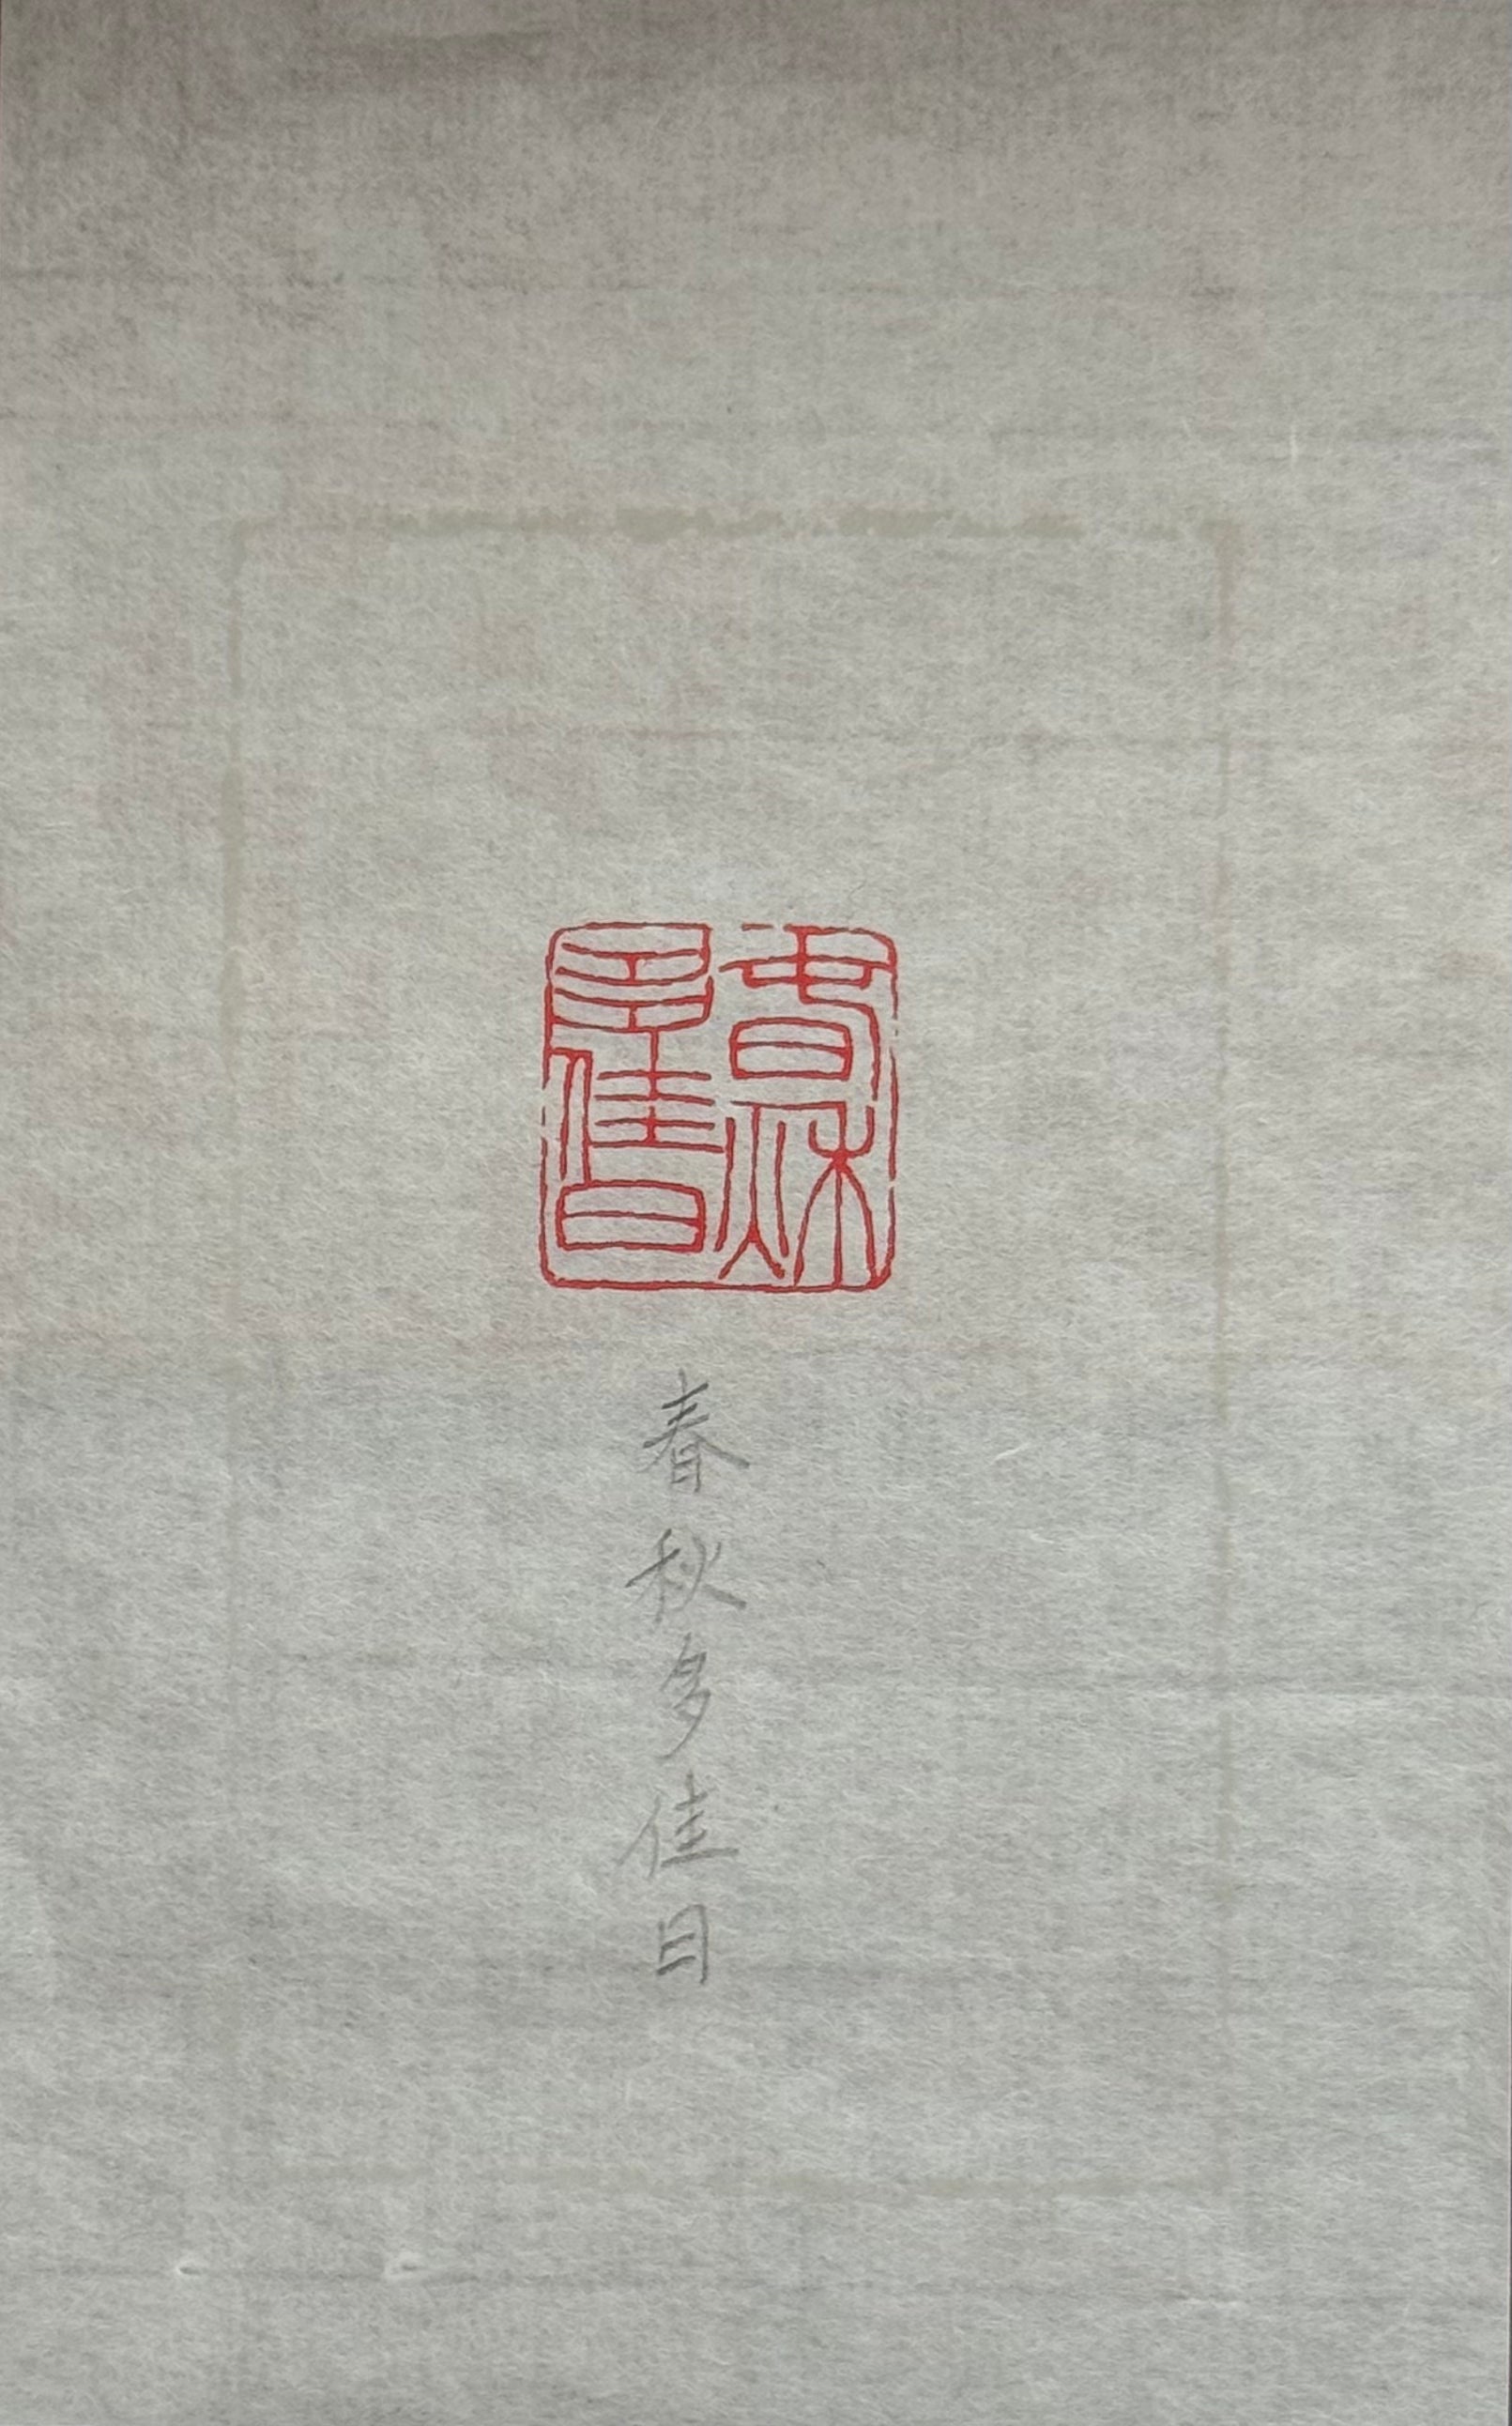 春秋多佳日
春秋多佳日